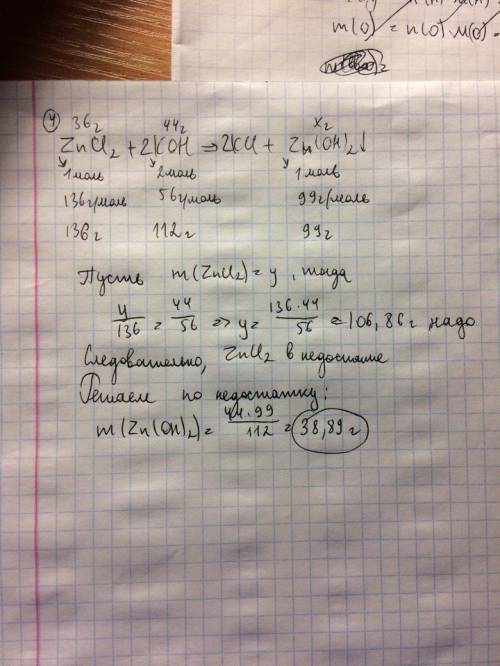 m(O) = n(O)·M(O)
④ 36г 44г x г
ZnCl₂ + 2KOH ⇒ 2KCl + Zn(OH)₂↓
1 моль 2 моль 1 моль
136 г/моль 56 г/моль 99 г/моль
136 г 112 г 99 г
Пусть m(ZnCl₂) = y, тогда
y/136 = 44/56 => y = 136·44/56 = 106,86 г надо
Следовательно, ZnCl₂ в недостатке
Решаем по недостатку:
m(Zn(OH)₂) = 44·99/112 = 38,89 г